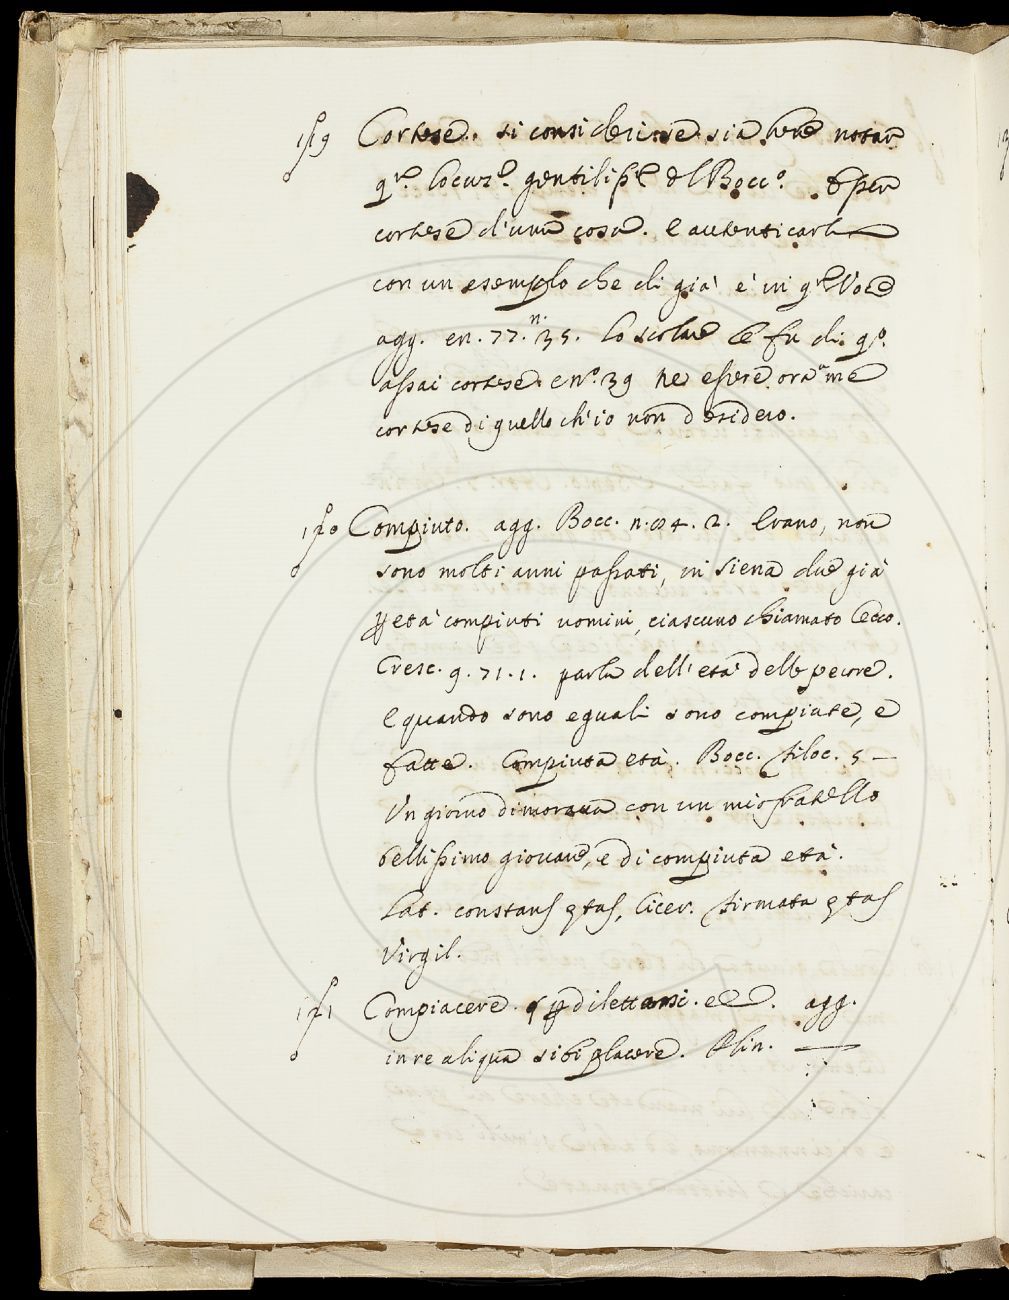 Cortese. si consideri se sia bene notar
q.ta locuz.e gentiliss.a del Bocc.o Esser
cortese d'una cosa. e autenticarla
con un esemplo che di già è in q.ta Voce
agg. en. 77. n. 35. lo scolare che fu di q.o
assai cortese. e n.o 39 ne essere ora a me
cortese di quello ch'io non desidero.
Compiuto. agg. Bocc. n. 84. 2. Erano, non
sono molti anni passati, in Siena due già
p età compiuti uomini, ciascuno chiamato Cecco.
Cresc. 9. 71. 1. parla dell'età delle pecore.
E quando sono eguali sono compiute, e
fatte. Compiuta età. Bocc. Filoc. 5 —
Un giorno dimorava con un mio fratello
bellissimo giovane, e di compiuta età.
Lat. constans ętas, Cicer. firmata ętas
Virgil.
Compiacere. § p dilettarsi. agg.
in re aliqua sibi placere. Plin. —